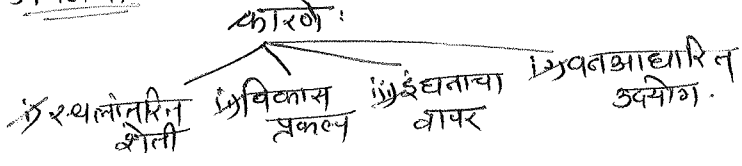 कारणे :
i) स्थलांतरित शेती
ii) विकास प्रकल्प
iii) इंधनाचा वापर
iv) वनआधारित उदयोग.